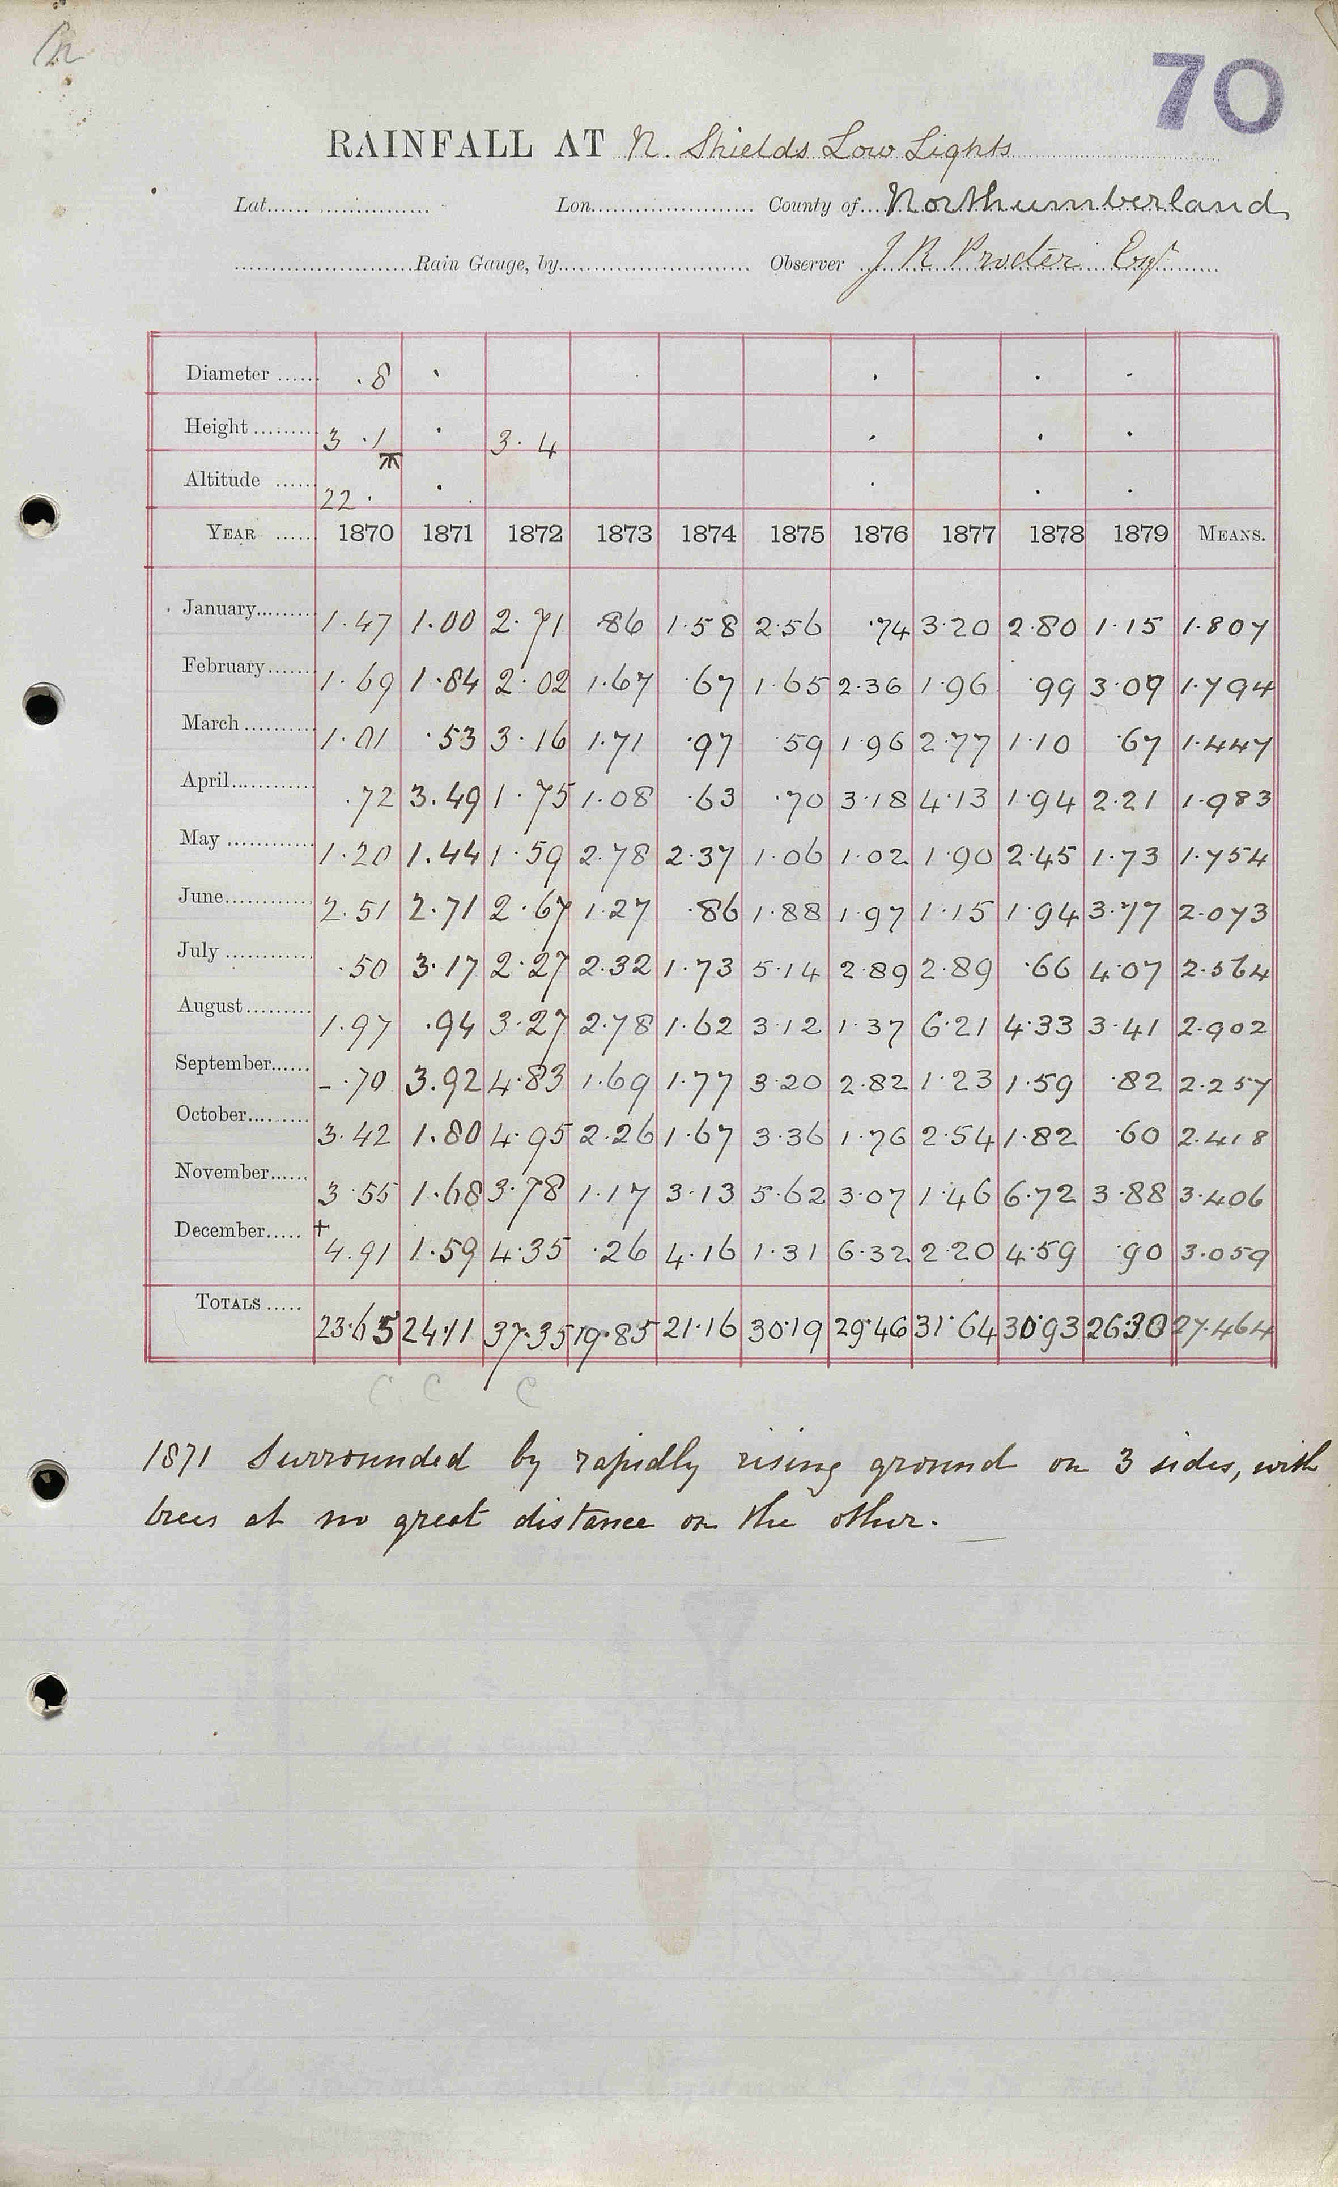 70
RAINFALL AT N. Shields Low Lights
Lat. Lon. County of Northumberland
Rain Gauge, by Observer J R Procter Esq
Diameter .8
Height 3 .1 3. 4
Altitude 22.
YEAR 1870 1871 1872 1873 1874 1875 1876 1877 1878 1879 MEANS.
January 1.47 1.00 2.71 .86 1.58 2.56 .74 3.20 2.80 1.15 1.807
February 1.69 1.84 2.02 1.67 .67 1.65 2.36 1.96 .99 3.09 1.794
March 1.01 .53 3.16 1.71 .97 .59 1.96 2.77 1.10 .67 1.447
April .72 3.49 1.75 1.08 .63 .70 3.18 4.13 1.94 2.21 1.983
May 1.20 1.44 1.59 2.78 2.37 1.06 1.02 1.90 2.45 1.73 1.754
June 2.51 2.71 2.67 1.27 .86 1.88 1.97 1.15 1.94 3.77 2.073
July .50 3.17 2.27 2.32 1.73 5.14 2.89 2.89 .66 4.07 2.564
August 1.97 .94 3.27 2.78 1.62 3.12 1.37 6.21 4.33 3.41 2.902
September - .70 3.92 4.83 1.69 1.77 3.20 2.82 1.23 1.59 .82 2.257
October 3.42 1.80 4.95 2.26 1.67 3.36 1.76 2.54 1.82 .60 2.418
November 3.55 1.68 3.78 1.17 3.13 5.62 3.07 1.46 6.72 3.88 3.406
December + 4.91 1.59 4.35 .26 4.16 1.31 6.32 2.20 4.59 .90 3.059
TOTALS 23.65 24.11 37.35 19.85 21.16 30.19 29.46 31.64 30.93 26.30 27.464
C C C
1871 Surrounded by rapidly rising ground on 3 sides, with
trees at no great distance on the other.